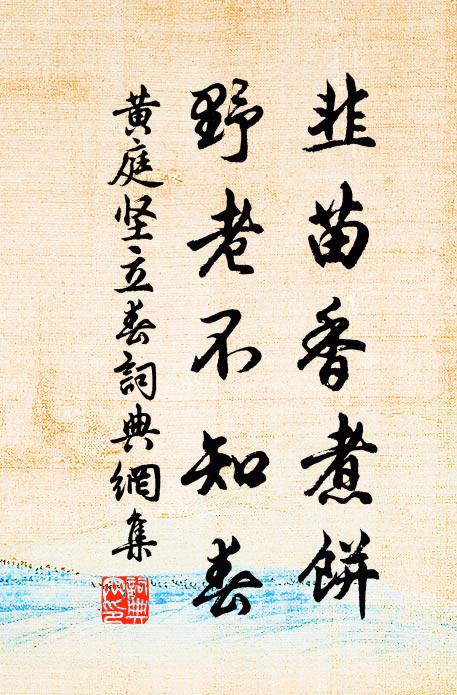 韭苗香煮餅
野老不知春
黄庭坚立春詞典網集